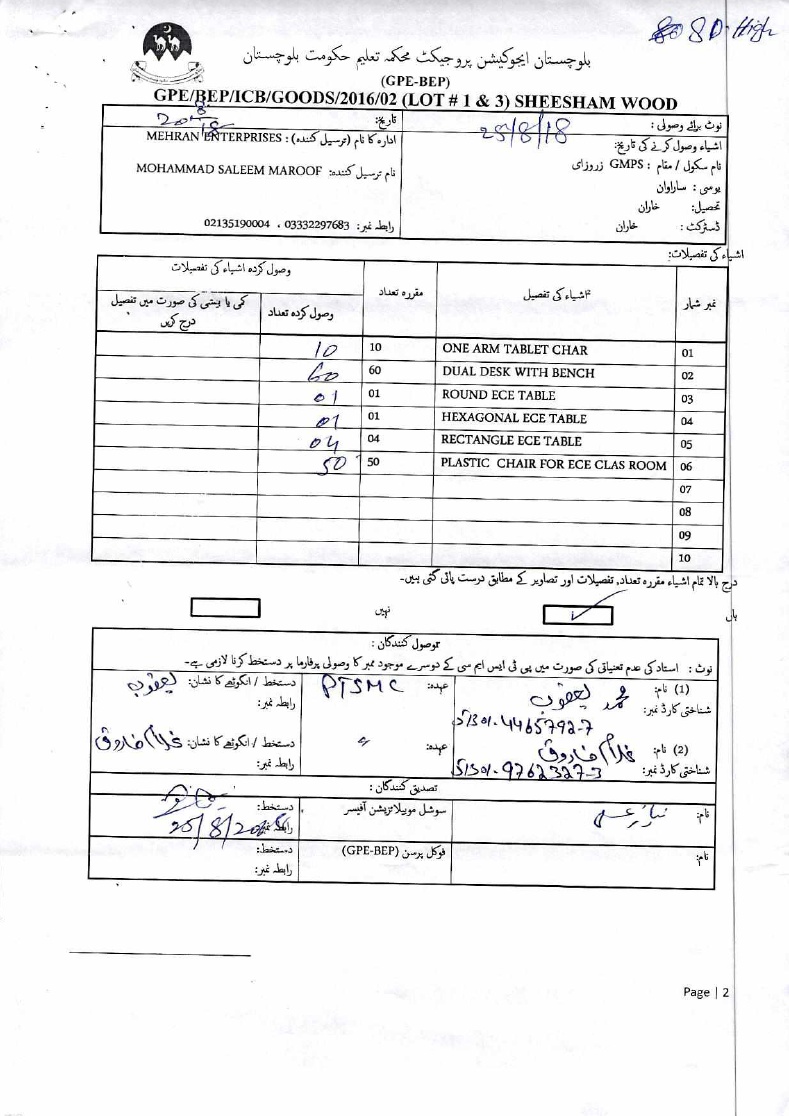 808D-High
بلوچستان ایجوکیشن پروجیکٹ محکمہ تعلیم حکومت بلوچستان
(GPE-BEP)
GPE/BEP/ICB/GOODS/2016/02 (LOT # 1 & 3) SHEESHAM WOOD
نوٹ برائے وصولی :
اشیاء وصول کرنے کی تاریخ: 25/8/18
نام سکول / مقام : GMPS زروزای
یوسی : ساراوان
تحصیل: خاران
ڈسٹرکٹ: خاران
تاریخ:
ادارہ کا نام (ترسیل کنندہ) : MEHRAN ENTERPRISES
نام ترسیل کنندہ: MOHAMMAD SALEEM MAROOF
رابطہ نمبر: 03332297683 ، 02135190004
اشیاء کی تفصیلات:
نمبر شمار اشیاء کی تفصیل مقررہ تعداد وصول کردہ اشیاء کی تفصیلات
وصول کردہ تعداد کمی یا بیشی کی صورت میں تفصیل درج کریں
01 ONE ARM TABLET CHAR 10 10
02 DUAL DESK WITH BENCH 60 60
03 ROUND ECE TABLE 01 01
04 HEXAGONAL ECE TABLE 01 01
05 RECTANGLE ECE TABLE 04 04
06 PLASTIC CHAIR FOR ECE CLAS ROOM 50 50
07
08
09
10
درج بالا تمام اشیاء مقررہ تعداد، تفصیلات اور تصاویر کے مطابق درست پائی گئی ہیں۔
ہاں نہیں
وصول کنندگان :
نوٹ : استاد کی عدم تعیناتی کی صورت میں پی ٹی ایس ایم سی کے دوسرے موجود ممبر کا وصولی پرفارما پر دستخط کرنا لازمی ہے۔
(1) نام: محمد یعقوب عہدہ: PTSMC دستخط / انگوٹھے کا نشان: یعقوب
شناختی کارڈ نمبر: 51301-4465792-7 رابطہ نمبر:
(2) نام: غلام فاروق عہدہ: " دستخط / انگوٹھے کا نشان: غلام فاروق
شناختی کارڈ نمبر: 51301-9762327-3 رابطہ نمبر:
تصدیق کنندگان :
نام: سوشل موبیلائزیشن آفیسر دستخط:
رابطہ نمبر: 25/8/2018
نام: فوکل پرسن (GPE-BEP) دستخط:
رابطہ نمبر:
Page | 2